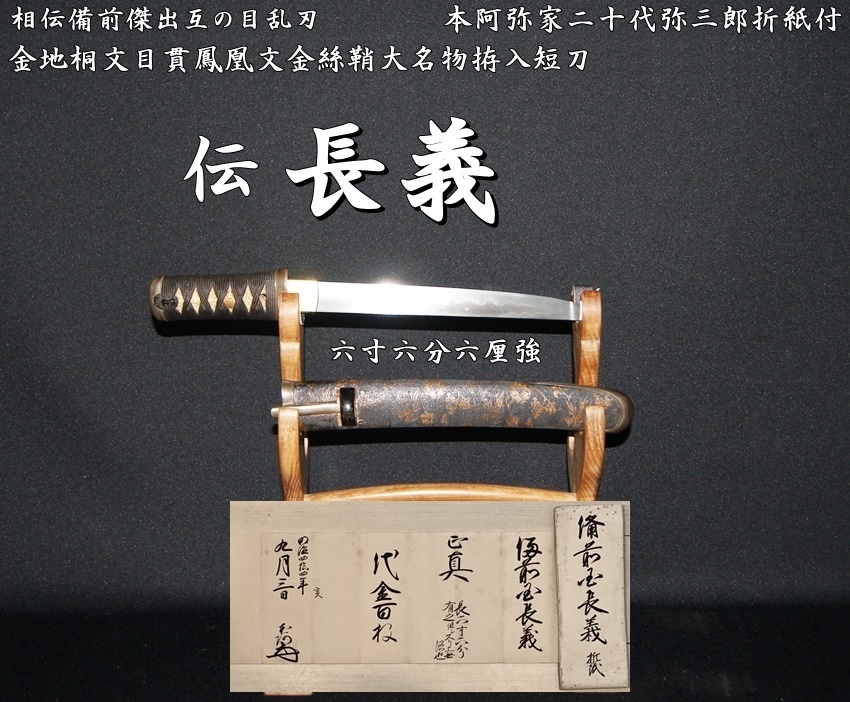 相伝備前傑出互の目乱刃
本阿弥家二十代弥三郎折紙付
金地桐文目貫鳳凰文金絲鞘大名物拵入短刀
伝 長義
六寸六分六厘強
備前国長義 折紙
備前国長義
正真
長六寸六分
代金百枚
明治四拾四年
亥
九月三日